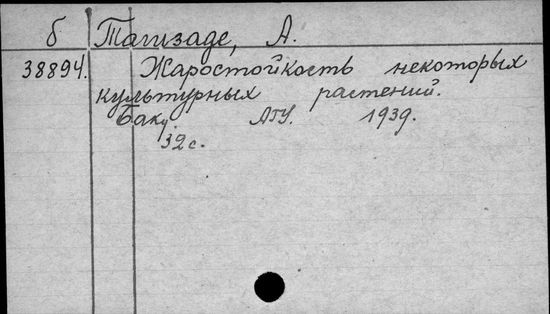 б Тагизаде, А.
38894. Жаростойкость некоторых
культурных растений.
Баку. АГУ. 1939.
32 с.